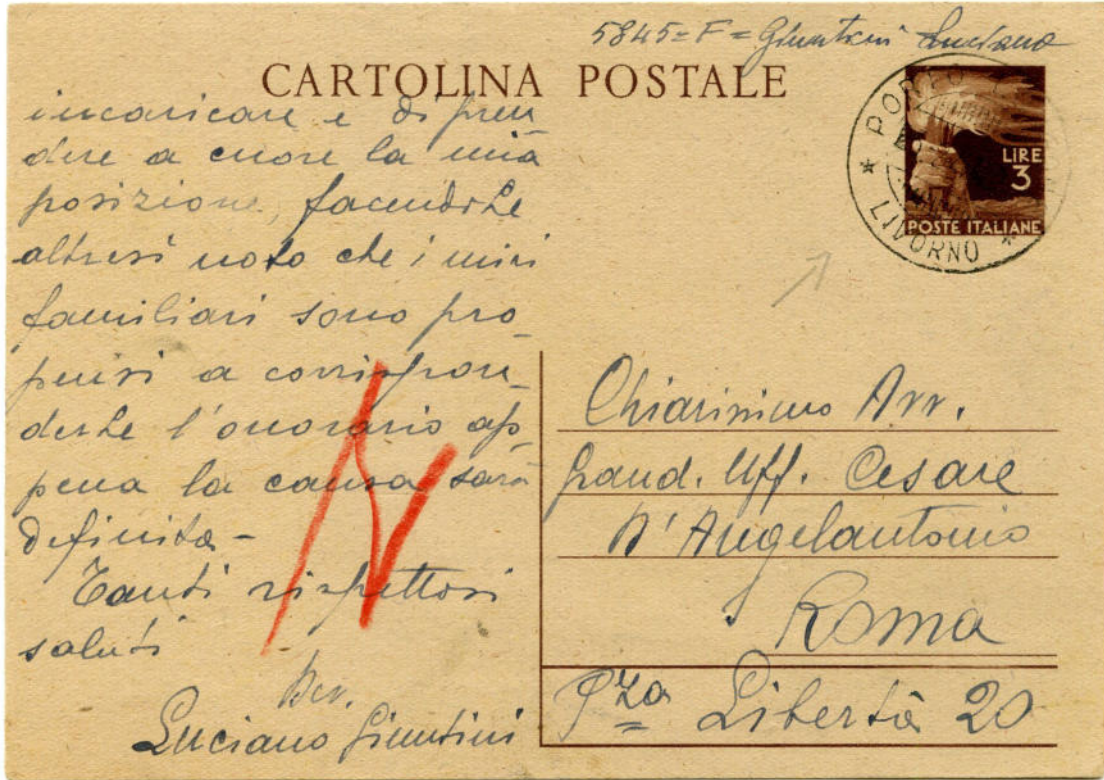 5845=F= Giuntini Luciano
CARTOLINA POSTALE
incaricare e di pren
dere a cuore la mia
posizione, facendoLe
altresì noto che i miei
familiari sono pro-
pensi a corrispon-
derLe l'onorario ap-
pena la causa sarà
definita-
Tanti rispettosi
saluti
Dev.
Luciano Giuntini
LIRE
3
POSTE ITALIANE
* LIVORNO *
Chiarissimo Avv.
Grand. Uff. Cesare
D'Angelantonio
Roma
Pza Libertà 20